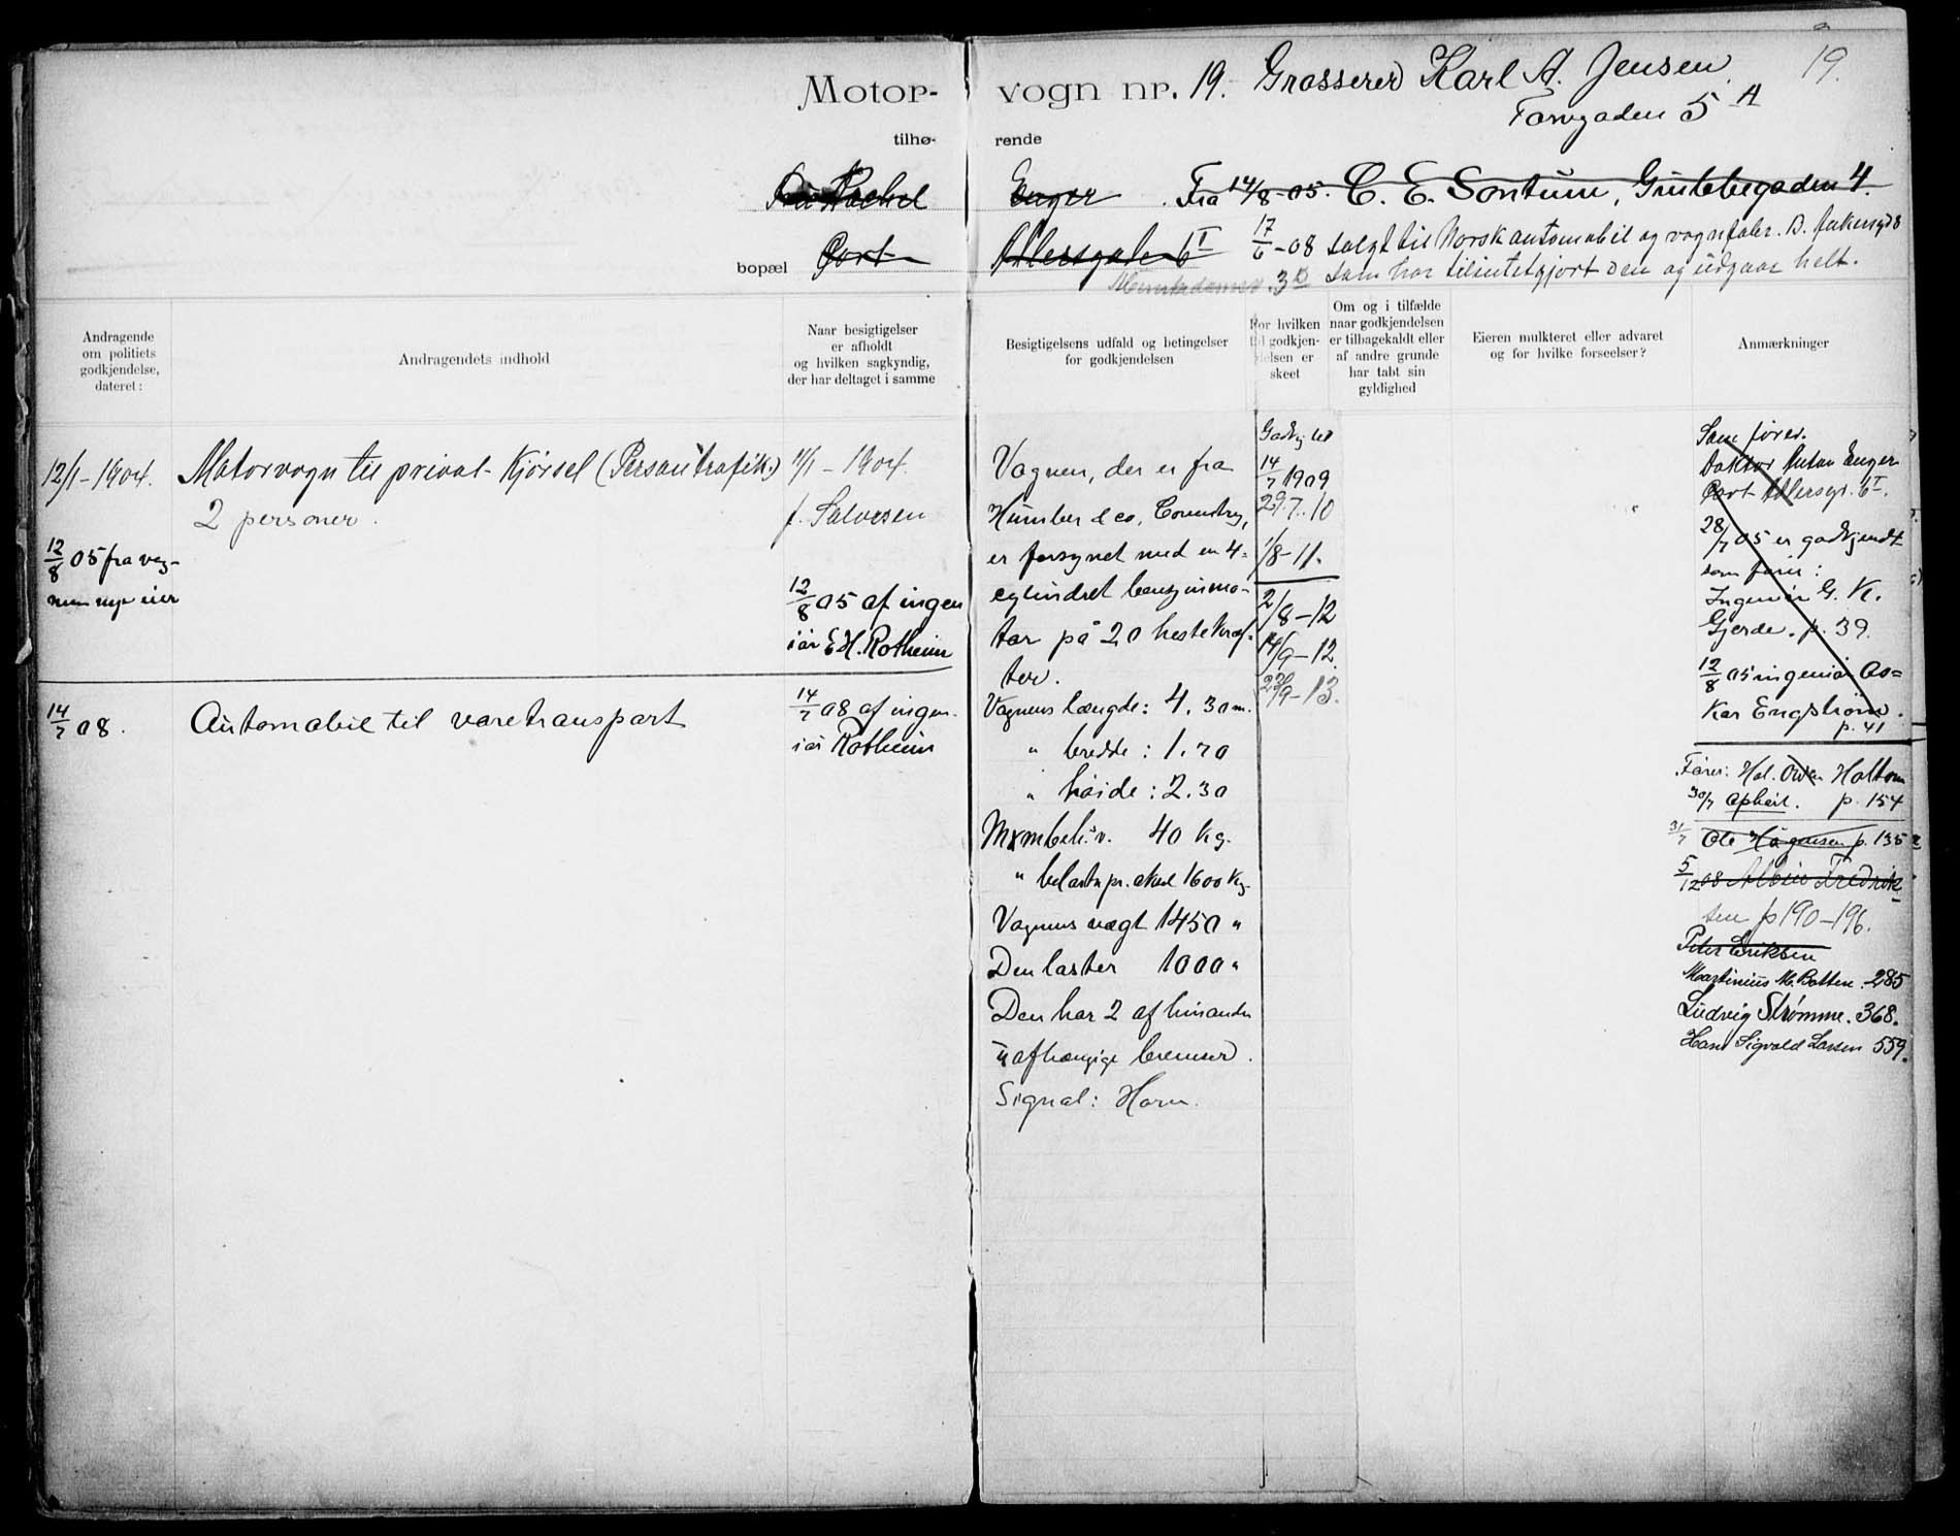 19.
Motor- vogn nr. 19. Grosserer Karl A. Jensen
Torvgaden 5 A
tilhø- rende
Fru Rachel Enger. Fra 14/8-05. C. E. Sontum, Grüttebegaden 4.
17/6-08 solgt til Norsk automobil og vognfabr.
bopæl Cort Adlersgaden 6 I
3 B som har tilintetgjort den og udgaar helt.
Andragende
om politiets
godkjendelse,
dateret:
Andragendets indhold
Naar besigtigelser
er afholdt
og hvilken sagkyndig,
der har deltaget i samme
Besigtigelsens udfald og betingelser
for godkjendelsen
For hvilken
tid godkjen-
delsen er
skeet
Om og i tilfælde
naar godkjendelsen
er tilbagekaldt eller
af andre grunde
har tabt sin
gyldighed
Eieren mulkteret eller advaret
og for hvilke forseelser?
Anmærkninger
12/1-1904.
12/8 05 fra vog-
nens nye eier
14/7 08.
Motorvogn til privat-Kjørsel (Persontrafik.)
2 personer.
Automobil til varetransport
11/1-1904.
f. Salvesen
12/8 05 af ingen
iør E. H. Rotheim
14/7 08 af ingen-
iør Rotheim
Vognen, der er fra
Humber & co, Coventry,
er forsynet med en 4-
cylindret benzinmo-
tor på 20 hestekræf-
ter.
Vognens længde: 4.30 m.
" bredde: 1.70
" høide: 2.30
40 kg.
" belastn pr. aksel 1600 kg.
Vognens vægt 1450 "
Den laster 1000 "
Den har 2 af hinanden
uafhængige bremser.
Signal: Horn.
Godkj. til
14/7 1909
29.7.10
1/8-11.
2/8-12
14/9-12.
29-13.
Som fører.
Doktor Anton Enger
Cort Adlersgt. 6 I.
28/7 05 er godkjendt
som fører:
Ingeniør G. K.
Gjerde. p. 39.
12/8 05 ingeniør Os=
kar Engstrøm.
p. 41
Fører: Hal. Holtom
30/7 ophørt. p. 154
31/7 Ole Hågensen p. 135
5/12 08 Albin Fredrik
sen p 190-196.
Peter Eriksen
Martinius M. Botten. 285
Ludvig Strømme. 368.
Hans Sigvald Larsen 559.